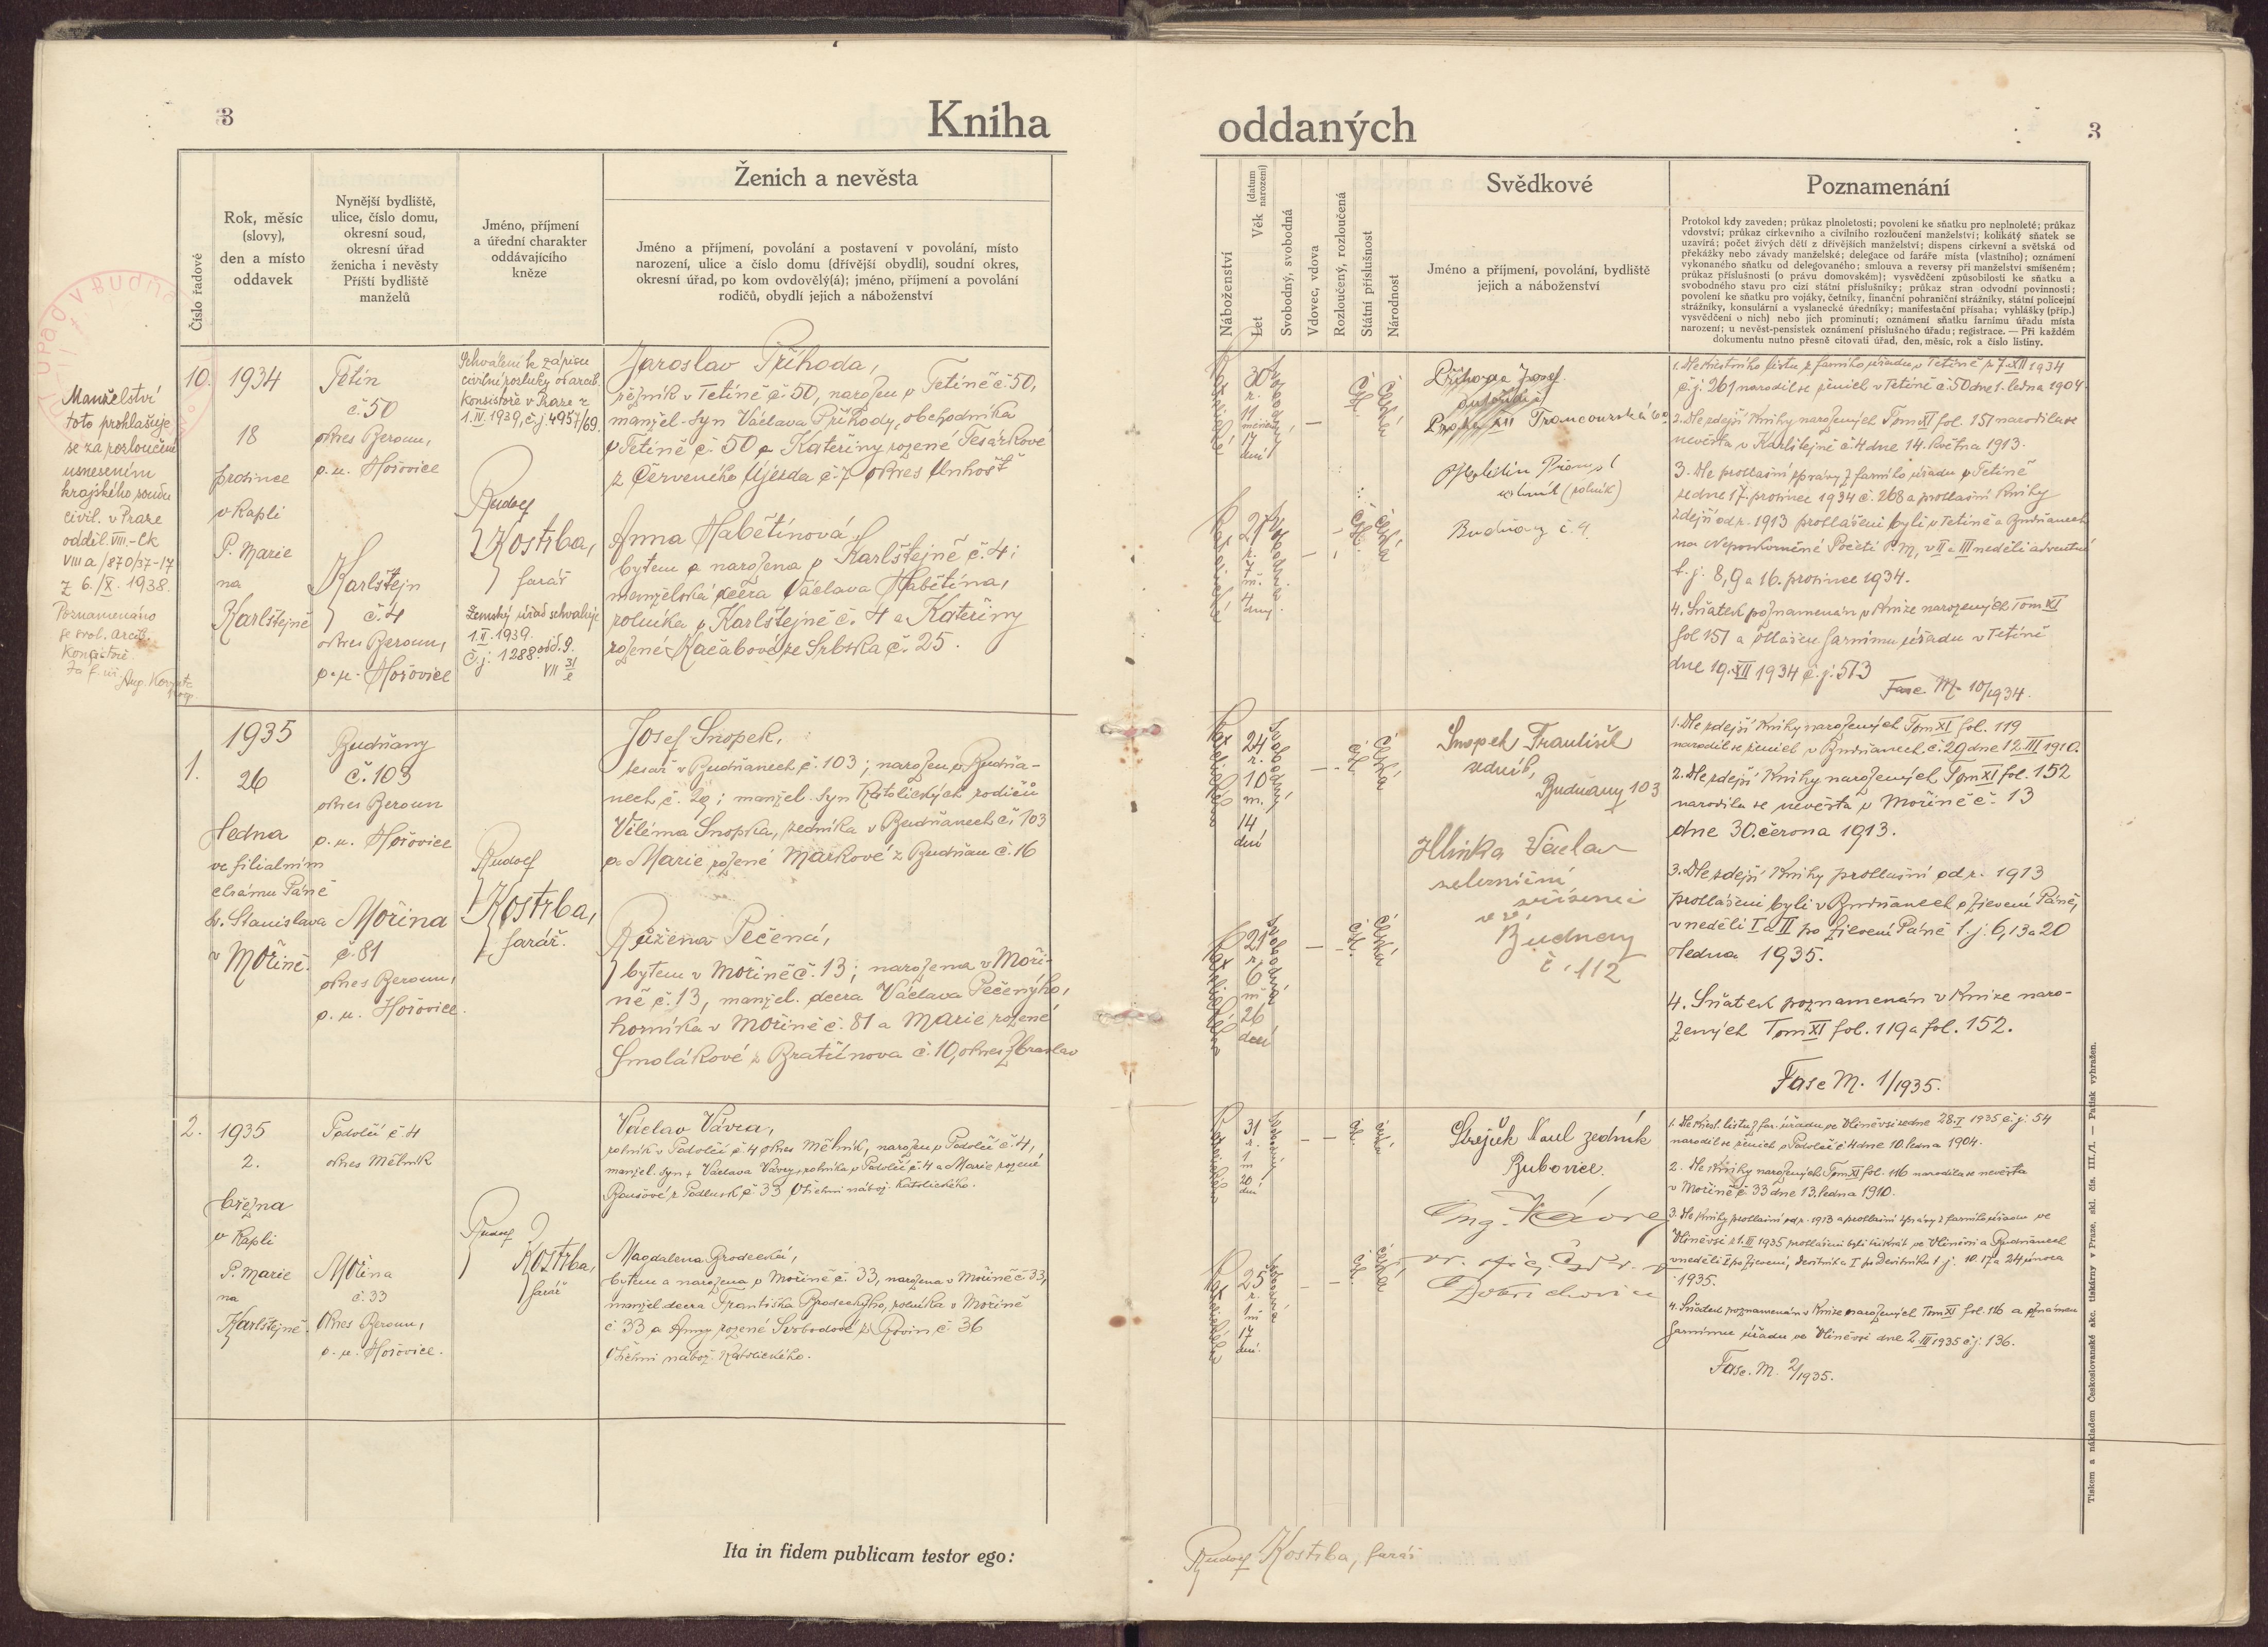 3
Kniha
oddaných
3
Číslo řadové
Rok, měsíc
(slovy),
den a místo
oddavek
Nynější bydliště,
ulice, číslo domu,
okresní soud,
okresní úřad
ženicha i nevěsty
Příští bydliště
manželů
Jméno, příjmení
a úřední charakter
oddávajícího
kněze
Ženich a nevěsta
Jméno a příjmení, povolání a postavení v povolání, místo
narození, ulice a číslo domu (dřívější obydlí), soudní okres,
okresní úřad, po kom ovdovělý(á); jméno, příjmení a povolání
rodičů, obydlí jejich a náboženství
Náboženství
Let
Věk (datum narození)
Svobodný, svobodná
Vdovec, vdova
Rozloučený, rozloučená
Státní příslušnost
Národnost
Svědkové
Jméno a příjmení, povolání, bydliště
jejich a náboženství
Poznamenání
Protokol kdy zaveden; průkaz plnoletosti; povolení ke sňatku pro neplnoleté; průkaz
vdovství; průkaz církevního a civilního rozloučení manželství; kolikátý sňatek se
uzavírá; počet živých dětí z dřívějších manželství; dispens církevní a světská od
překážky nebo závady manželské; delegace od faráře místa (vlastního); oznámení
vykonaného sňatku od delegovaného; smlouva a reversy při manželství smíšeném;
průkaz příslušnosti (o právu domovském); vysvědčení způsobilosti ke sňatku a
svobodného stavu pro cizí státní příslušníky; průkaz stran odvodní povinnosti;
povolení ke sňatku pro vojáky, četníky, finanční pohraniční strážníky, státní policejní
strážníky, konsulární a vyslanecké úředníky; manifestační přísaha; vyhlášky (příp.)
vysvědčení o nich) nebo jich prominutí; oznámení sňatku farnímu úřadu místa
narození; u nevěst-pensistek oznámení příslušného úřadu; registrace. — Při každém
dokumentu nutno přesně citovati úřad, den, měsíc, rok a číslo listiny.
Manželství
toto prohlašuje
se za rozloučené
usnesením
krajského soudu
civil. v Praze
oddíl. VIII.-Ck
VIIIa/870/37-17
z 6./X. 1938.
Poznamenáno
se svol. arcib.
Konsistoře.
10.
1934
18
prosince
v kapli
P. Marie
na
Karlštejně
Tetín
č. 50
okres Beroun,
p. u. Hořovice
Karlštejn
č. 4
okres Beroun,
p. u. Hořovice
Schválení k zápisu
civilní rozluky od arcib.
konsistoře v Praze z
1. IV. 1939, č.j. 4957/69.
Rudolf
Kostrba,
farář
Zemský úřad schvaluje
1. II. 1939.
Č.j. 1288 odd. 9.
Jaroslav Příhoda,
řezník v Tetíně č. 50, narozen v Tetíně č. 50,
manžel. syn Václava Příhody, obchodníka
v Tetíně č. 50 a Kateřiny rozené Tesárkové
z Červeného Újezda č. 7 okres Unhošť
Anna Habětínová,
bytem a narozena v Karlštejně č. 4;
manželská dcera Václava Habětína,
rolníka v Karlštejně č. 4 a Kateřiny
rozené Kačabové ze Srbska č. 25.
30
r.
11
měsíců
17
dní
27
r.
7
m.
4
dny.
Příhoda Josef
Praha XII
Budňany č. 4.
(rolník)
1. Dle křestního listu z farního úřadu v Tetíně z 7. XII 1934
č.j. 261 narodil se ženich v Tetíně č. 50 dne 1. ledna 1904.
2. Dle zdejší knihy narozených Tom XI fol. 151 narodila se
nevěsta v Karlštejně č. 4 dne 14. května 1913.
3. Dle prohlašní zprávy z farního úřadu v Tetíně
ze dne 17. prosince 1934 č. 268 a prohlašní knihy
zdejší od r. 1913 prohlášeni byli v Tetíně a Budňanech
na Neposkvrněné Početí P. M., v II a III neděli adventní
t. j. 8, 9 a 16. prosince 1934.
4. Sňatek poznamenán v knize narozených Tom XI
fol 151 a ohlášen farnímu úřadu v Tetíně
dne 19. XII 1934 č.j. 513
Fasc M. 10/1934.
1.
1935
26
ledna
ve filialním
chrámu Páně
sv. Stanislava
v Mořině.
Budňany
č. 103
okres Beroun
p. u. Hořovice
Mořina
č. 81
okres Beroun,
p. u. Hořovice.
Rudolf
Kostrba,
farář.
Josef Snopek,
tesař v Budňanech č. 103; narozen v Budňa-
nech č. 29; manžel. syn katolických rodičů
Viléma Snopka, zedníka v Budňanech č. 103
a Marie rozené Markové z Budňan č. 16
Růžena Pečená,
bytem v Mořině č. 13; narozena v Moři-
ně č. 13, manžel. dcera Václava Pečenýho,
horníka v Mořině č. 81 a Marie rozené
Smolákové z Bratřínova č. 10, okres Zbraslav
24
r.
10
m.
14
dní
21
r.
6
m.
26
dní
Snopek František
zedník,
Budňany 103
Hlinka Václav
železniční
zřízenec
Budňany
č. 112
1. Dle zdejší knihy narozených Tom XI fol. 119
narodil se ženich v Budňanech č. 29 dne 12. III 1910.
2. Dle zdejší knihy narozených Tom XI fol. 152
narodila se nevěsta v Mořině č. 13
dne 30. června 1913.
3. Dle zdejší knihy prohlašní od r. 1913
prohlášeni byli v Budňanech o Zjevení Páně,
v neděli I a II po Zjevení Páně t. j. 6, 13 a 20
ledna 1935.
4. Sňatek poznamenán v knize naro-
zených Tom XI fol. 119 a fol. 152.
Fasc M. 1/1935.
2.
1935
2.
března
v kapli
P. Marie
na
Karlštejně.
Podolčí č. 4
okres Mělník
Mořina
č. 33
Okres Beroun,
p. u. Hořovice.
Rudolf
Kostrba,
farář
Václav Vávra,
rolník v Podolčí č. 4 okres Mělník, narozen v Podolčí č. 4,
manžel. syn + Václava Vávry, rolníka v Podolčí č. 4 a Marie rozené
č. 33 Všichni nábož. katolického.
Magdalena Brodecká,
bytem a narozena v Mořině č. 33, narozena v Mořině č. 33,
manžel. dcera Františka Brodeckýho, rolníka v Mořině
č. 33 a Anny rozené Svobodové z Rovin č. 36
Všichni nábož. katolického.
31
r.
1
m
20
dní
25
r.
1
m
17
dní.
zedník
Bubovice.
Ing. Vávra
Dobřichovice
1. Dle křest. listu z far. úřadu ve Vliněvsi ze dne 28. I 1935 č.j. 54
narodil se ženich v Podolčí č. 4 dne 10. ledna 1904.
2. Dle knihy narozených Tom XI fol. 116 narodila se nevěsta
v Mořině č. 33 dne 13. ledna 1910.
3. Dle knihy prohlašní od r. 1913 a prohlašní zprávy z farního úřadu ve
Vliněvsi z 1. III 1935 prohlášeni byli třikrát ve Vliněvsi a Budňanech
v neděli po Zjevení, Devítník a I po Devítníku t. j. 10. 17 a 24. února
1935.
4. Sňatek poznamenán v knize narozených Tom XI fol. 116 a oznámen
farnímu úřadu ve Vliněvsi dne 2. III 1935 č.j. 136.
Fasc. M. 2/1935.
Ita in fidem publicam testor ego:
Rudolf Kostrba, farář
Tiskem a nákladem Československé akc. tiskárny v Praze, skl. čís. III./1. — Patisk vyhražen.